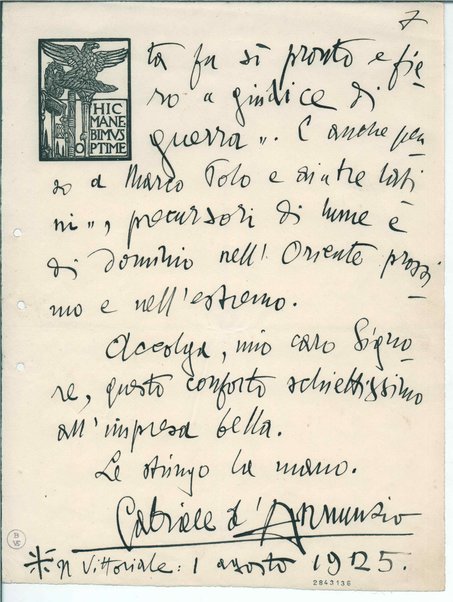 7
HIC
MANE
BIMVS
OPTIME
ta fu sì pronto e fie=
ro "giudice di
guerra". E anche pen
so a Marco Polo e ai "tre lati
ni", precursori di lume e
di dominio nell'Oriente prossi
mo e nell'estremo.
Accolga, mio caro Signo
re, questo conforto schiettissimo
all'impresa bella.
Le stringo la mano.
Gabriele d'Annunzio
Il Vittoriale: 1 agosto 1925.
2843136